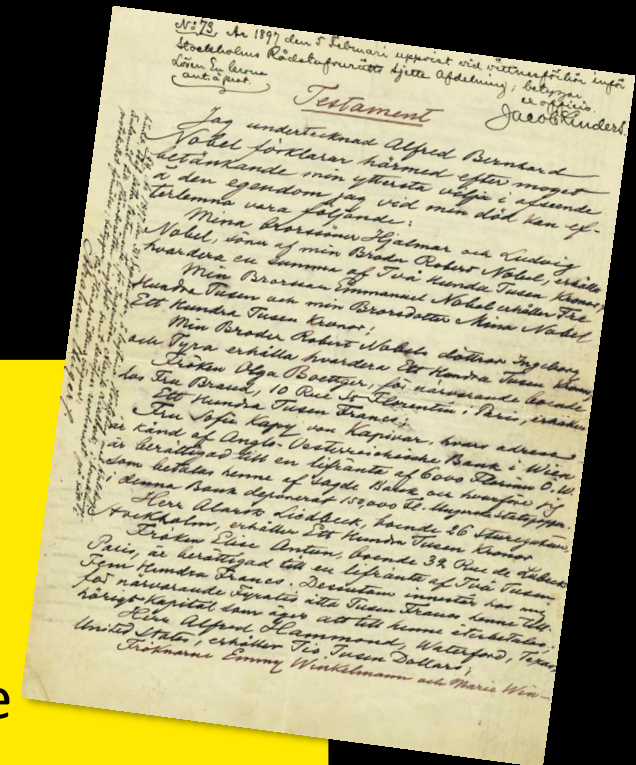 No 73. År 1897 den 5 Februari uppvist vid vittnesförhör inför
Stockholms Rådstufvurätts sjette Afdelning; betygar
Lösen En krona ex officio.
Jacob Linders
Testament
Jag undertecknad Alfred Bernhard
Nobel förklarar härmed efter moget
betänkande min yttersta vilja i afseende
å den egendom jag vid min död kan ef-
terlemna vara följande:
Mina brorsöner Hjalmar och Ludvig
Nobel, söner af min Broder Robert Nobel, erhålla
hvardera en summa af Två Hundra Tusen Kronor;
Min Brorson Emmanuel Nobel erhåller Tre
Hundra Tusen och min Brorsdotter Mina Nobel
Ett Hundra Tusen Kronor;
Min Broder Robert Nobels döttrar Ingeborg
och Tyra erhålla hvardera Ett Hundra Tusen Kronor;
Fröken Olga Boettger, för närvarande boende
hos Fru Brand, 10 Rue St Florentin i Paris, erhåller
Ett Hundra Tusen Francs;
Fru Sofie Kapy von Kapivar, hvars adress
är känd af Anglo-Oesterreichische Bank i Wien
är berättigad till en lifränta af 6000 Florins Ö.W.
som betalas henne af sagde Bank och hvarföre jag
i denna Bank deponerat 150,000 Fl. i Ungerska statspapper.
Herr Alarik Liedbeck, boende 26 Sturegatan,
Stockholm, erhåller Ett Hundra Tusen Kronor
Fröken Elise Antun, boende 32 Rue de Lubeck
Paris, är berättigad till en lifränta af Två Tusen
Fem Hundra Francs. Desutom innestår hos mig
för närvarande Fyratio åtta Tusen Francs henne till-
hörigt Kapital som äger att till henne återbetalas;
Herr Alfred Hammond, Waterford, Texas,
United States, erhåller Tio Tusen Dollars;
Fröknarne Emmy Winkelmann och Marie Win-
e